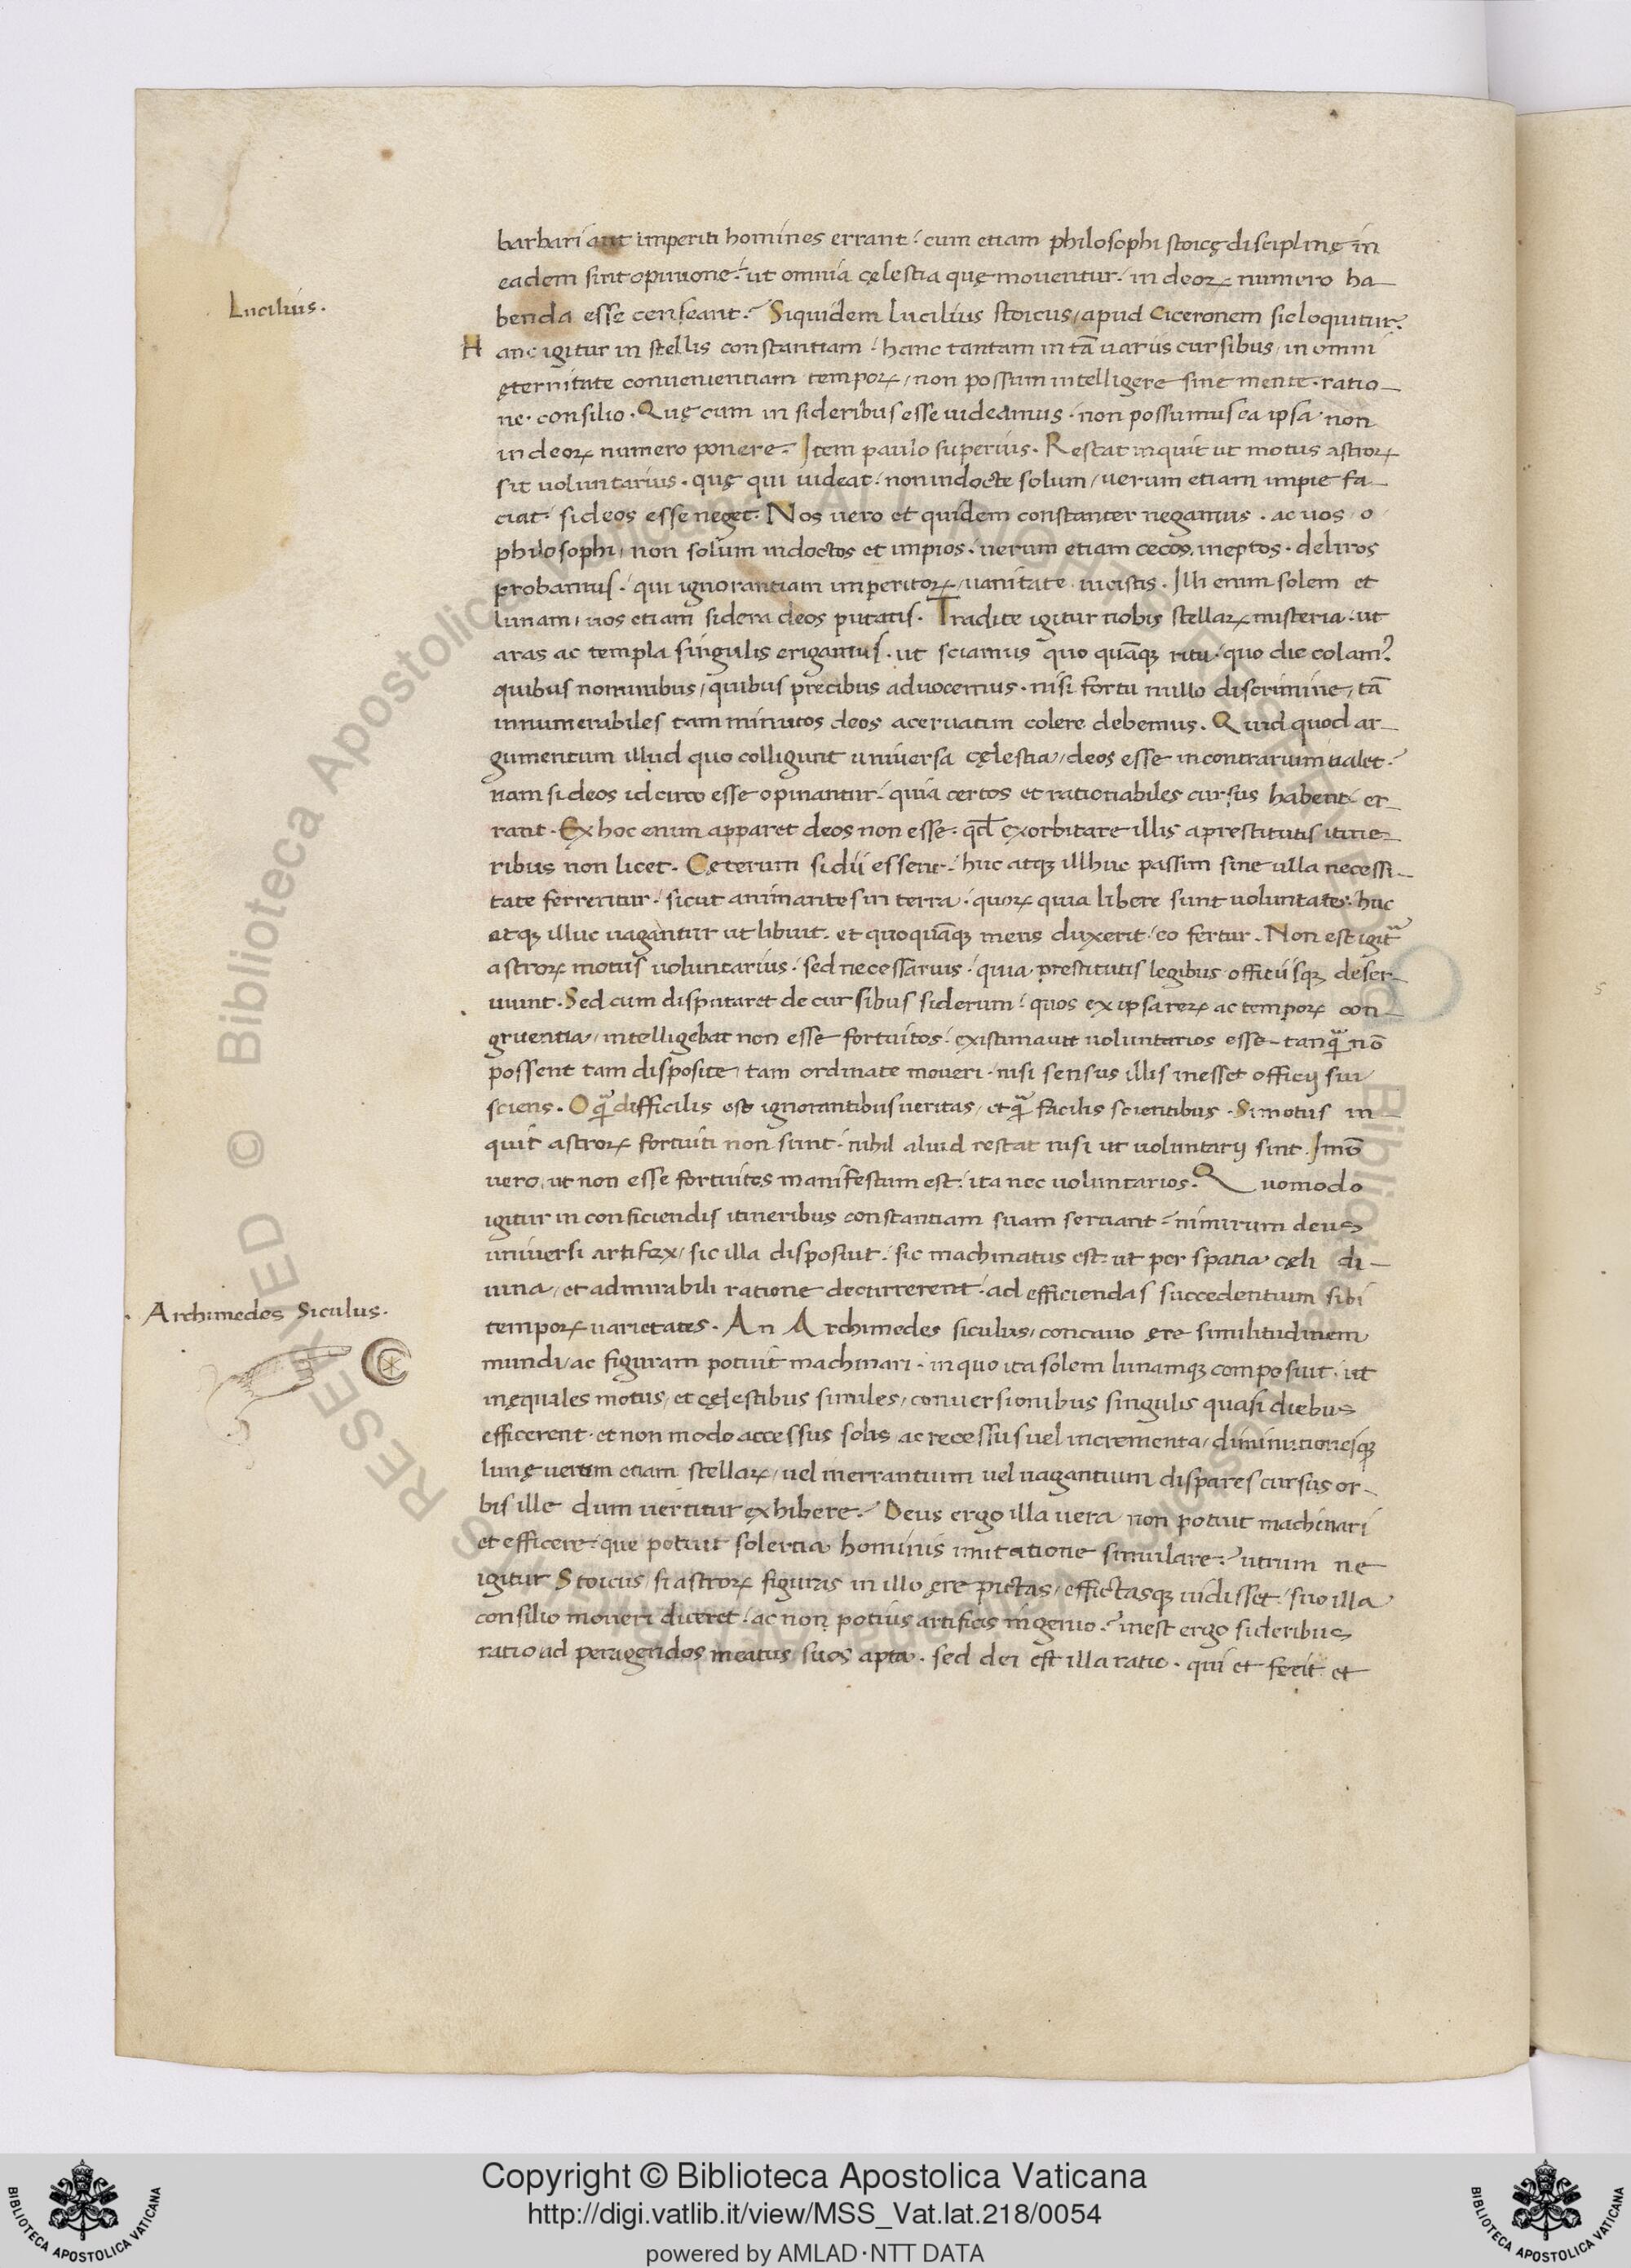 barbari aut imperiti homines errant: cum etiam philosophi stoicę disciplinę in
eadem sint opinione: ut omnia cęlestia quę moventur: in deoꝝ numero ha-
Lucilius.
benda esse censeant? Siquidem Lucilius stoicus, apud Ciceronem sic loquitur.
Hanc igitur in stellis constantiam: hanc tantam in tā uariis cursibus, in omni
ęternitate convenientiam tempoꝝ, non possum intelligere sine mente. ratio-
ne. consilio. Quę cum in sideribus esse uideamus. non possumus ea ipsa non
in deoꝝ numero ponere. Item paulo superius. Restat inquit ut motus astroꝝ
sit uoluntarius. quę qui uideat: non indocte solum, uerum etiam impie fa-
ciat: si deos esse neget. Nos uero et quidem constanter negamus. ac uos, o
philosophi, non solum indoctos et impios. uerum etiam cecos. ineptos. deliros
probamus. qui ignorantiam imperitoꝝ, uanitate uicistis. Illi enim solem et
lunam, uos etiam sidera deos putatis. Tradite igitur nobis stellaꝝ misteria. ut
aras ac templa singulis erigamus. ut sciamus quo quāqꝫ ritu. quo die colam?
quibus nominibus, quibus precibus aduocemus. nisi fortu nullo discrimine, tā
innumerabiles tam minutos deos aceruatim colere debemus. Quid quod ar-
gumentum illud quo colligunt universa cęlestia, deos esse in contrarium ualet?
nam si deos idcirco esse opinantur: quia certos et rationabiles cursus habent: er-
rant. Ex hoc enim apparet deos non esse. qđ exorbitare illis aprestitutis itine-
ribus non licet. Cęterum si dii essent: huc atqꝫ illhuc passim sine ulla necessi-
tate ferrentur: sicut animantes in terra. quoꝝ quia libere sunt uoluntates: huc
atqꝫ illuc uagantur ut libuit. et quoquāqꝫ mens duxerit, eo fertur. Non est igit̃
astroꝝ motus uoluntarius. sed necessarius: quia pręstitutis legibus officiisqꝫ deser-
uiunt. Sed cum disputaret de cursibus siderum: quos ex ipsa reꝝ ac tempoꝝ con-
gruentia, intelligebat non esse fortuitos: existimauit uoluntarios esse-tanq̃ nō
possent tam disposite, tam ordinate moveri. nisi sensus illis inesset officij sui
sciens. O q̃ difficilis est ignorantibus ueritas, et q̃ facilis scientibus. Si motus in-
quit astroꝝ fortuiti non sunt: nihil aliud restat nisi ut uoluntarij sint. Imō
vero, ut non esse fortuitos manifestum est: ita nec uoluntarios. Quomodo
igitur in conficiendis itineribus constantiam suam seruant? nimirum deus
universi artifex, sic illa disposuit: sic machinatus est: ut per spatia cęli di-
uina, et admirabili ratione decurrerent: ad efficiendas succedentium sibi
Archimedes Siculus.
tempoꝝ uarietates. An Archimedes siculus, concauo ęre similitudinem
mundi, ac figuram potuit machinari. in quo ita solem lunamqꝫ composuit. ut
inęquales motus, et cęlestibus similes, conuersionibus singulis quasi diebus
efficerent. et non modo accessus solis ac recessus uel incrementa, diminutionesqꝫ
lunę uerum etiam stellaꝝ, uel inerrantium uel uagantium dispares cursus or-
bis ille dum uertitur exhibere? Deus ergo illa uera non potuit machinari
et efficere: que potuit solertia hominis imitatione simulare? utrum ne
igitur Stoicus, si astroꝝ figuras in illo ęre pictas, effictasqꝫ uidisset. suo illa
consilio moveri diceret: ac non potius artificis ingenio? inest ergo sideribus
ratio ad peragendos meatus suos apta. sed dei est illa ratio. qui et fecit et
Copyright © Biblioteca Apostolica Vaticana
http://digi.vatlib.it/view/MSS_Vat.lat.218/0054
powered by AMLAD·NTT DATA
BIBLIOTECA APOSTOLICA VATICANA
BIBLIOTECA APOSTOLICA VATICANA